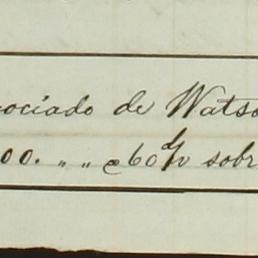 ociado de Wats
00. " " c 60 d/v sobr